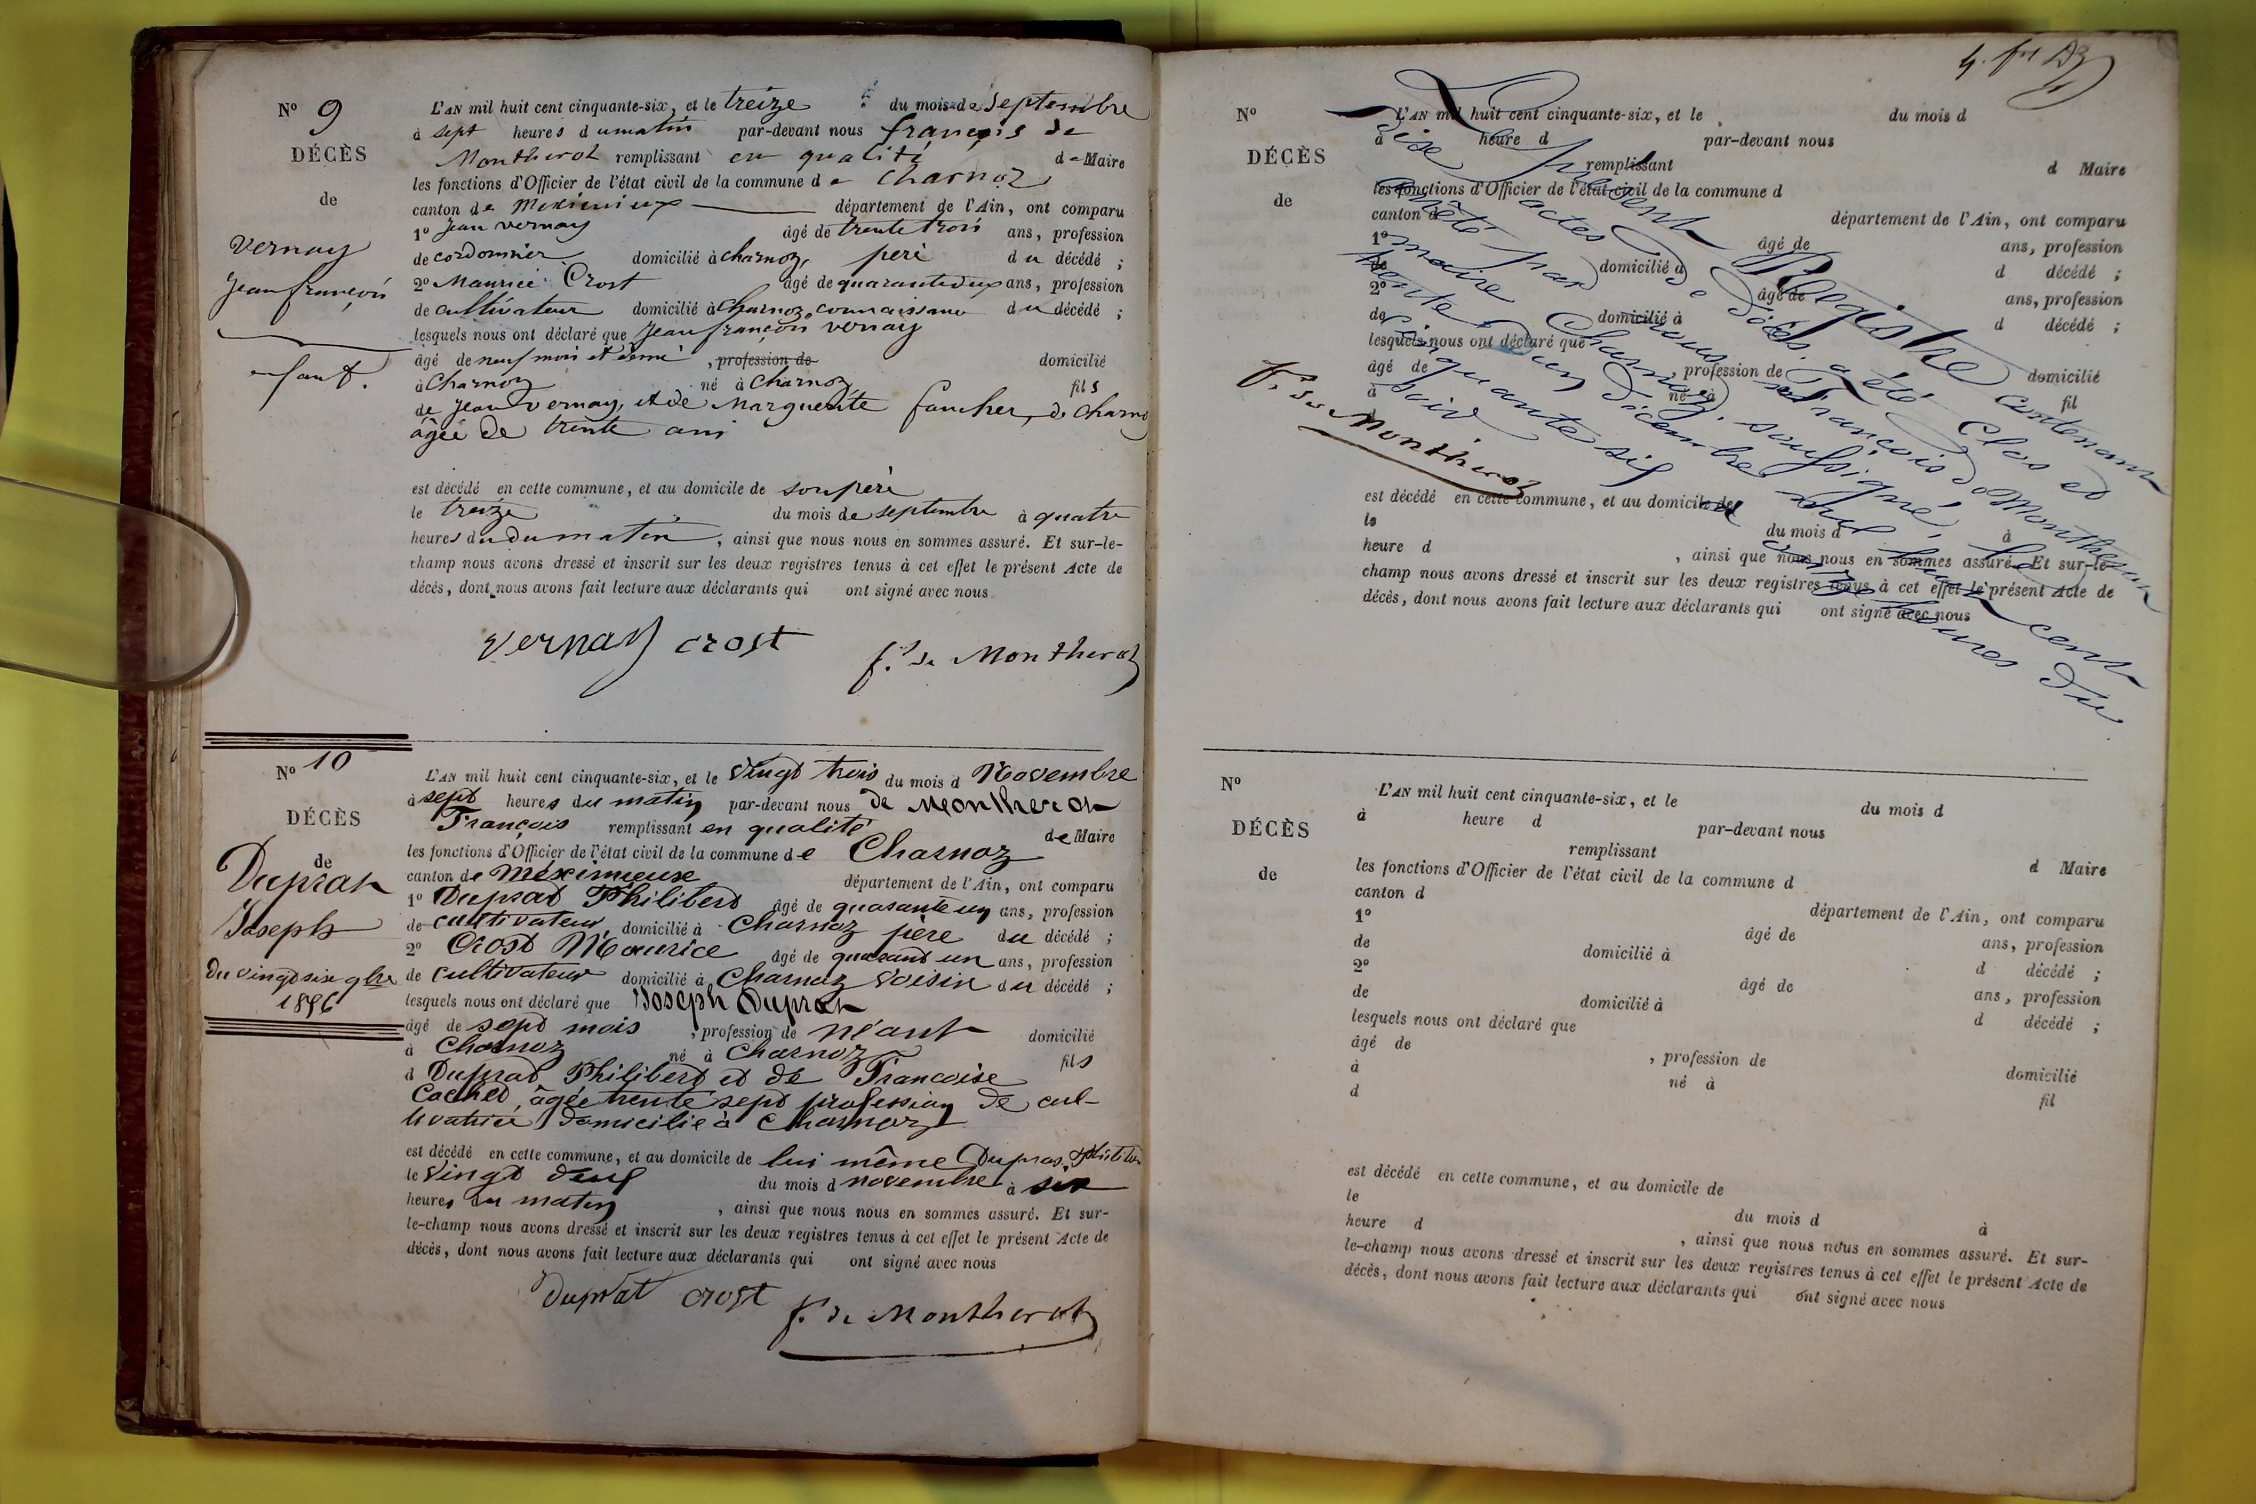 N° 9
DÉCÈS
de
Vernay
Jean françois
enfant.
L'AN mil huit cent cinquante-six, et le treize du mois de Septembre
à sept heures du matin par-devant nous françois de
Montherot remplissant en qualité de Maire
les fonctions d'Officier de l'état civil de la commune de Charnoz
canton de Meximieux département de l'Ain, ont comparu
1° Jean vernay âgé de trente trois ans, profession
de cordonnier domicilié à charnoz, père du décédé ;
2° Maurice Crost âgé de quarante deux ans, profession
de cultivateur domicilié à Charnoz, connaissance du décédé ;
lesquels nous ont déclaré que Jean françois vernay
âgé de neuf mois et demi , profession de domicilié
à Charnoz né à Charnoz fils
de Jean vernay, et de Marguerite faucher, de Charnoz
âgée de trente ans
est décédé en cette commune, et au domicile de son père
le treize du mois de septembre à quatre
heures du du matin , ainsi que nous nous en sommes assuré. Et sur-le-
champ nous avons dressé et inscrit sur les deux registres tenus à cet effet le présent Acte de
décès, dont nous avons fait lecture aux déclarants qui ont signé avec nous
vernay crost f. de Montherot
N° 10
DÉCÈS
de
Duprat
Joseph
du vingt six 9bre
1856
L'AN mil huit cent cinquante-six, et le vingt trois du mois d Novembre
à sept heures du matin par-devant nous de Montherot
François remplissant en qualité de Maire
les fonctions d'Officier de l'état civil de la commune de Charnoz
canton de Méximieux département de l'Ain, ont comparu
1° Duprat Philibert âgé de quarante un ans, profession
de cultivateur domicilié à Charnoz père du décédé ;
2° Crost Maurice âgé de quarant un ans, profession
de cultivateur domicilié à Charnoz voisin du décédé ;
lesquels nous ont déclaré que Joseph Duprat
âgé de sept mois , profession de néant domicilié
à Charnoz né à Charnoz fils
d Duprat Philibert et de Francoise
Cochet, âgée trente sept profession de cul-
tivatrice domicilié à Charnoz
est décédé en cette commune, et au domicile de lui même Duprat Philibert
le vingt deux du mois d novembre à six
heures du matin , ainsi que nous nous en sommes assuré. Et sur-
le-champ nous avons dressé et inscrit sur les deux registres tenus à cet effet le présent Acte de
décès, dont nous avons fait lecture aux déclarants qui ont signé avec nous
Duprat crost f. de Montherot
N°
DÉCÈS
de
L'AN mil huit cent cinquante-six, et le du mois d
à heure d par-devant nous
remplissant d Maire
les fonctions d'Officier de l'état civil de la commune d
canton d département de l'Ain, ont comparu
1° âgé de ans, profession
de domicilié à d décédé ;
2° âgé de ans, profession
de domicilié à d décédé ;
lesquels nous ont déclaré que
âgé de , profession de domicilié
à né à fil
d
est décédé en cette commune, et au domicile de
le du mois d à
heure d , ainsi que nous nous en sommes assuré. Et sur-le-
champ nous avons dressé et inscrit sur les deux registres tenus à cet effet le présent Acte de
décès, dont nous avons fait lecture aux déclarants qui ont signé avec nous
Le présent Registre contenant
dix actes de décès a été Clos et
arrêté par nous François de Montherot
maire Charnoz, soussigné, le
trente un décembre mil huit cent
cinquante six à onze heures du
soir
f. de Montherot
N°
DÉCÈS
de
L'AN mil huit cent cinquante-six, et le du mois d
à heure d par-devant nous
remplissant d Maire
les fonctions d'Officier de l'état civil de la commune d
canton d département de l'Ain, ont comparu
1° âgé de ans, profession
de domicilié à d décédé ;
2° âgé de ans, profession
de domicilié à d décédé ;
lesquels nous ont déclaré que
âgé de , profession de domicilié
à né à fil
d
est décédé en cette commune, et au domicile de
le du mois d à
heure d , ainsi que nous nous en sommes assuré. Et sur-
le-champ nous avons dressé et inscrit sur les deux registres tenus à cet effet le présent Acte de
décès, dont nous avons fait lecture aux déclarants qui ont signé avec nous